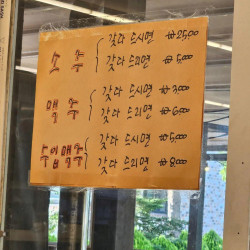 소주 갖다 드시면 ₩2,500
갖다 드리면 ₩5,000
맥주 갖다 드시면 ₩3,000
갖다 드리면 ₩6,000
수입맥주 갖다 드시면 ₩5,000
갖다 드리면 ₩8,000